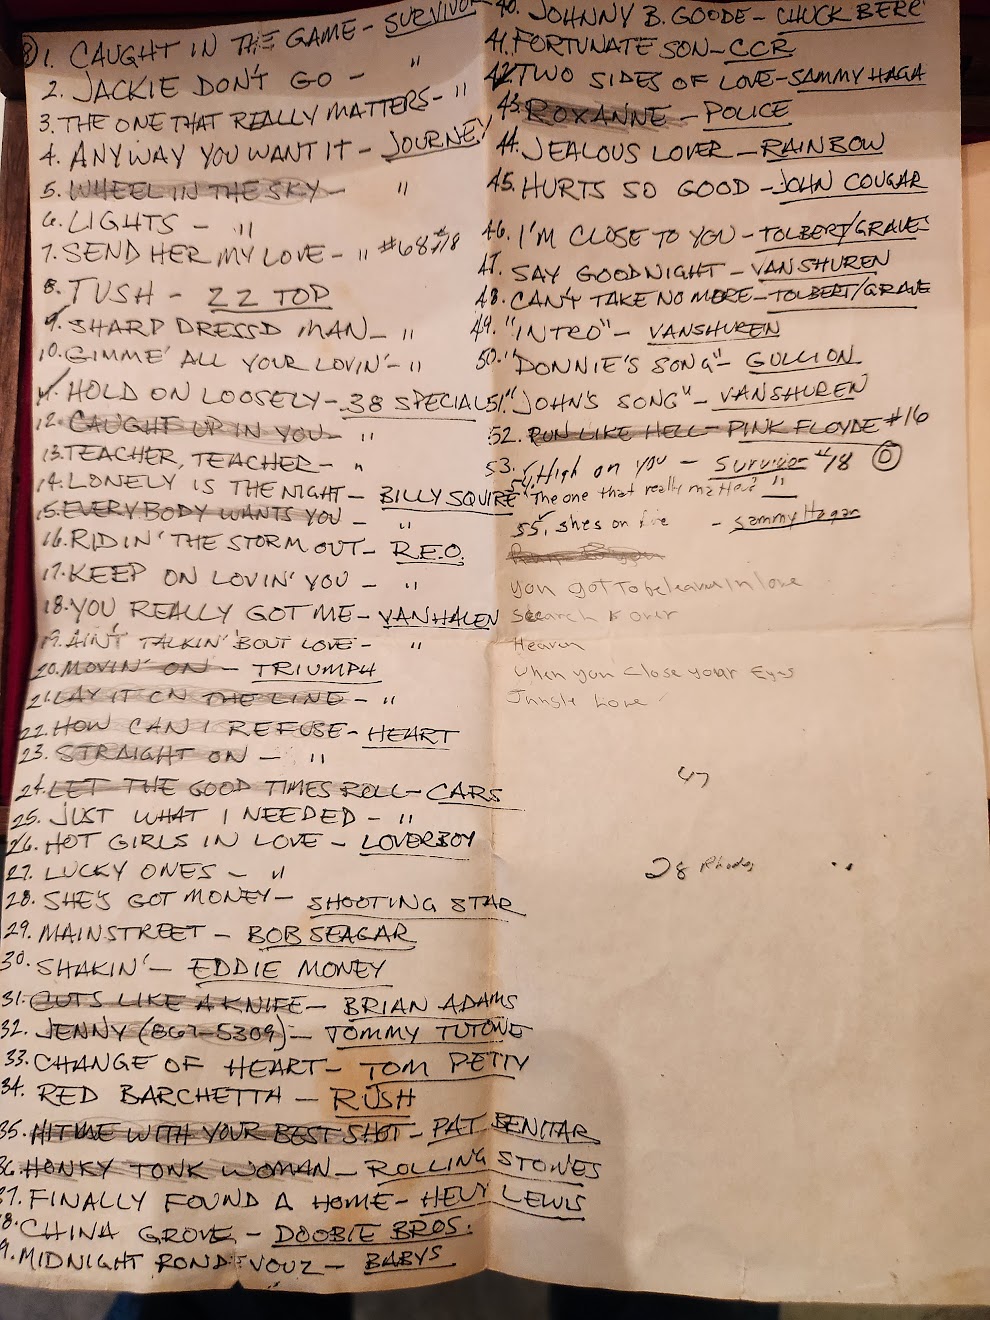 1. CAUGHT IN THE GAME - SURVIVOR
2. JACKIE DON'T GO - "
3. THE ONE THAT REALLY MATTERS - "
4. ANY WAY YOU WANT IT - JOURNEY
5. WHEEL IN THE SKY - "
6. LIGHTS - "
7. SEND HER MY LOVE - " #68 #18
8. TUSH - ZZ TOP
9. SHARP DRESSD MAN - "
10. GIMME' ALL YOUR LOVIN' - "
11. HOLD ON LOOSELY - .38 SPECIAL
12. CAUGHT UP IN YOU - "
13. TEACHER, TEACHER - "
14. LONELY IS THE NIGHT - BILLY SQUIRE
15. EVERYBODY WANTS YOU - "
16. RIDIN' THE STORM OUT - R.E.O.
17. KEEP ON LOVIN' YOU - "
18. YOU REALLY GOT ME - VAN HALEN
19. AIN'T TALKIN' 'BOUT LOVE - "
20. MOVIN' ON - TRIUMPH
21. LAY IT ON THE LINE - "
22. HOW CAN I REFUSE - HEART
23. STRAIGHT ON - "
24. LET THE GOOD TIMES ROLL - CARS
25. JUST WHAT I NEEDED - "
26. HOT GIRLS IN LOVE - LOVERBOY
27. LUCKY ONES - "
28. SHE'S GOT MONEY - SHOOTING STAR
29. MAINSTREET - BOB SEAGAR
30. SHAKIN' - EDDIE MONEY
31. CUTS LIKE A KNIFE - BRIAN ADAMS
32. JENNY (867-5309) - TOMMY TUTONE
33. CHANGE OF HEART - TOM PETTY
34. RED BARCHETTA - RUSH
35. HIT ME WITH YOUR BEST SHOT - PAT BENITAR
36. HONKY TONK WOMAN - ROLLING STONES
37. FINALLY FOUND A HOME - HEUY LEWIS
8. CHINA GROVE - DOOBIE BROS.
9. MIDNIGHT RONDEVOUZ - BABYS
40. JOHNNY B. GOODE - CHUCK BERR
41. FORTUNATE SON - CCR
42. TWO SIDES OF LOVE - SAMMY HAGA
43. ROXANNE - POLICE
44. JEALOUS LOVER - RAINBOW
45. HURTS SO GOOD - JOHN COUGAR
46. I'M CLOSE TO YOU - TOLBERT/GRAVE
47. SAY GOODNIGHT - VANSHUREN
48. CAN'T TAKE NO MORE - TOLBERT/GRAVE
49. "INTRO" - VANSHUREN
50. "DONNIE'S SONG" - GULLION
51. "JOHN'S SONG" - VANSHUREN
52. RUN LIKE HELL - PINK FLOYDE #16
53. High on you - Survivor #18
54. The one that really matters "
55. shes on fire - Sammy Hagan
you got To beleave In love
Search is over
Heaven
When you Close your Eyes
Jungle Love
47
28 Rhodes